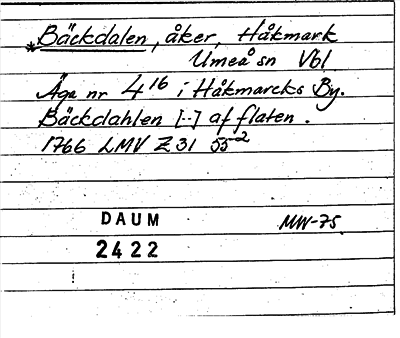 *Bäckdalen, åker, Håkmark
Umeå sn Vbl
Äga nr 4¹⁶ i Håkmarcks By.
Bäckdahlen [--] af flaten.
1766 LMV Z 31 55⁻²
DAUM MW-75
2422